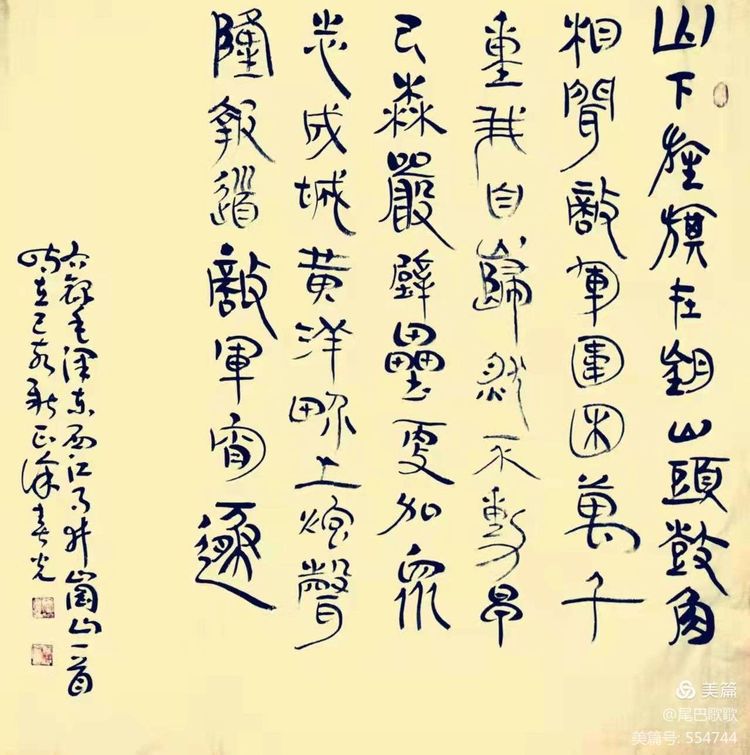 山下旌旗在望山頭鼓角
相聞敵軍圍困萬千
重我自巋然不動早
已森嚴壁壘更加眾
志成城黃洋畍上炮聲
隆報道敵軍宵遯
右錄毛澤東西江月井崗山一首
時在己亥新正徐春光
美篇
@尾巴歌歌
美篇号: 554744